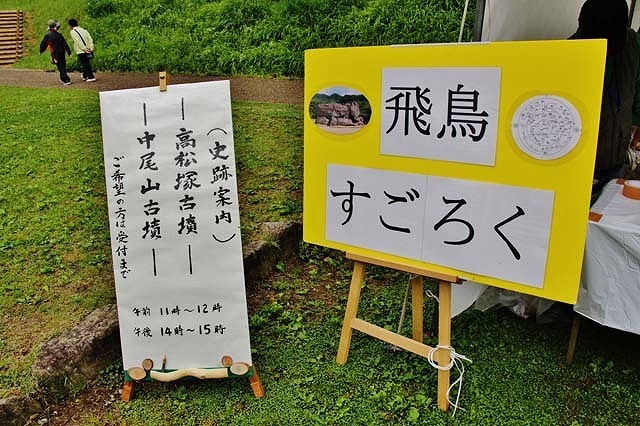 (史跡案内)
―高松塚古墳―
―中尾山古墳―
ご希望の方は受付まで
午前 11時～12時
午後 14時～15時
飛鳥
すごろく